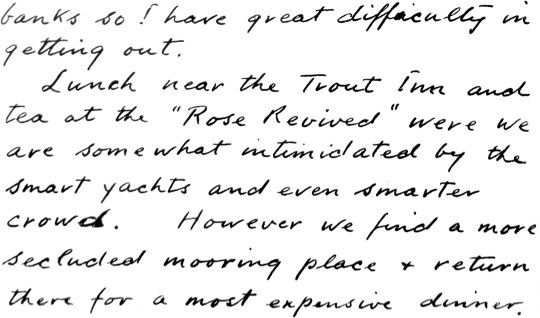 banks so I have great difficulty in
getting out.
Lunch near the Trout Inn and
tea at the "Rose Revived" were we
are somewhat intimidated by the
smart yachts and even smarter
crowd. However we find a more
secluded mooring place + return
there for a most expensive dinner.